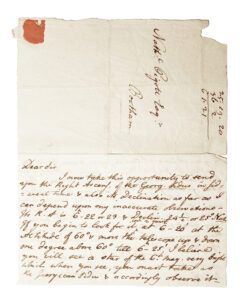 Nath.l Pigott Esq.r
25 . 19 . 20
Dear Sir
I now take this opportunity to send
you the Right Ascen. of the Georg. Sidus in
time & also it Declination as far as I
can depend upon my inaccurate Observations
Its R. A is 6-22 or 23 & Declin. 24° or 23°
If you begin to look for it at 6-20 at the
Altitude of 60° & move the Telescope up & down
one degree above 60° till 6-25, I believe
you will see a star of the 6th mag. very bright
which when you see, you must take it as
the Georgian Sidus & accordingly observe it